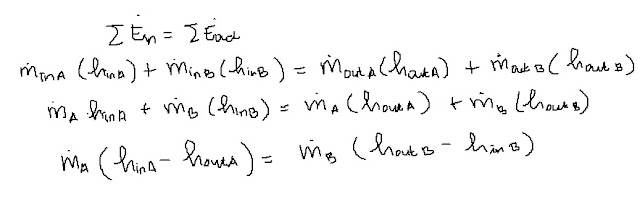 Σ Ėin = Σ Ėout
ṁinA (hinA) + ṁinB (hinB) = ṁoutA (houtA) + ṁoutB (houtB)
ṁA hinA + ṁB (hinB) = ṁA (houtA) + ṁB (houtB)
ṁA (hinA - houtA) = ṁB (houtB - hinB)